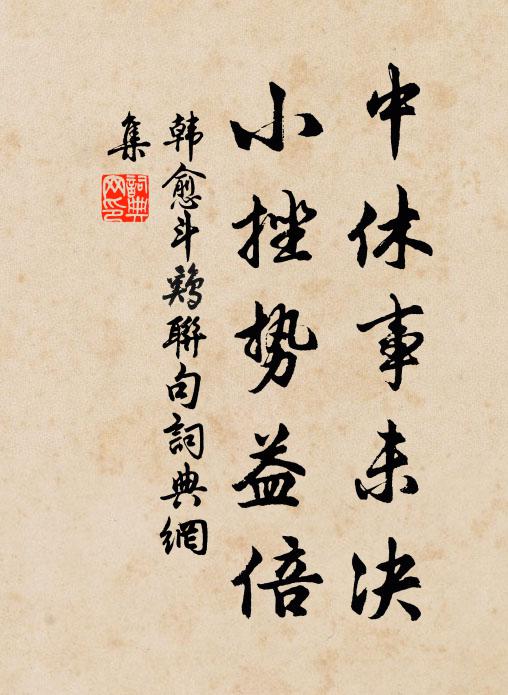 中休事未决
小挫势益倍
韩愈斗鸡聯句詞典網
集
詞典
网印